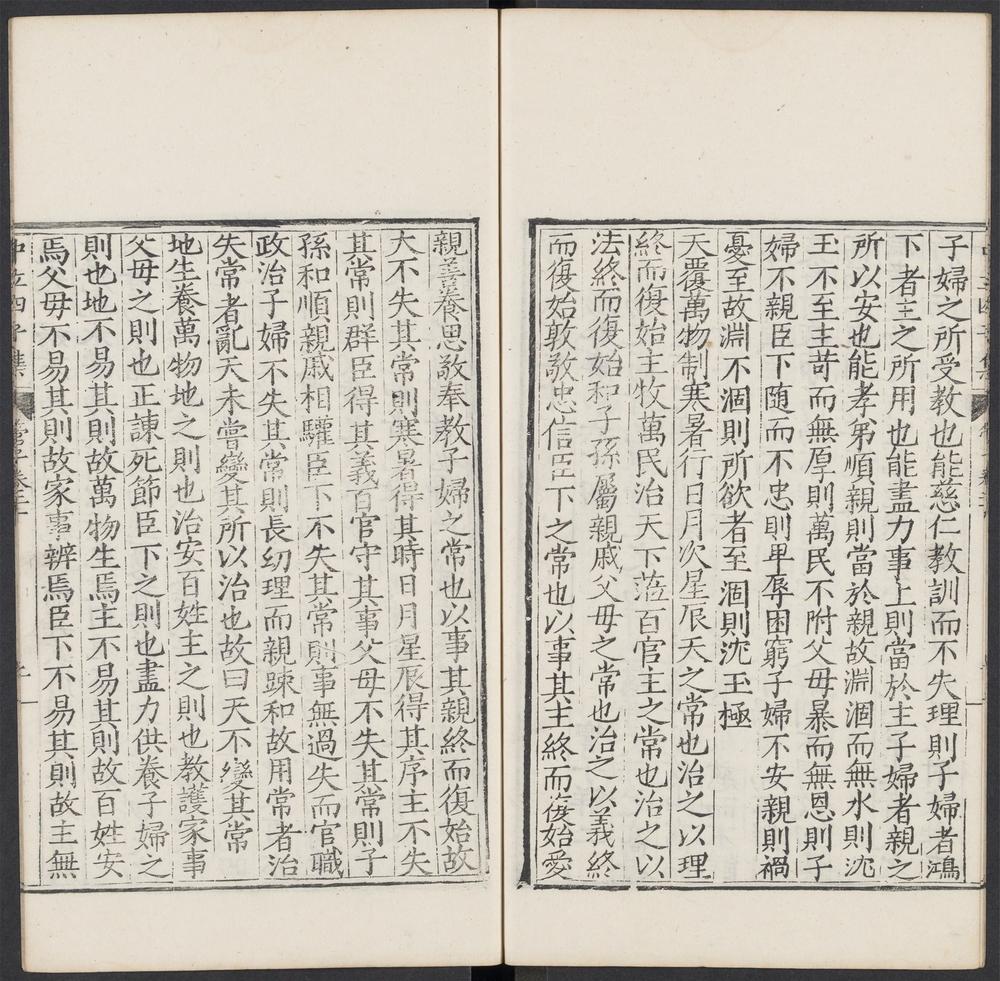 子婦之所受教也能慈仁教訓而不失理則子婦者鴻
下者主之所用也能盡力事上則當於主子婦者親之
所以安也能孝弟順親則當於親故淵涸而無水則沈
玉不至主苛而無厚則萬民不附父母暴而無恩則子
婦不親臣下随而不忠則卑辱困窮子婦不安親則禍
憂至故淵不涸則所欲者至涸則沈玉極
天覆萬物制寒暑行日月次星辰天之常也治之以理
終而復始主牧萬民治天下蒞百官主之常也治之以
法終而復始和子孫屬親戚父母之常也治之以義終
而復始敦敬忠信臣下之常也以事其主終而復始愛
親善養思敬奉教子婦之常也以事其親終而復始故
大不失其常則寒暑得其時日月星辰得其序主不失
其常則群臣得其義百官守其事父母不失其常則子
孫和順親戚相驩臣下不失其常則事無過失而官職
政治子婦不失其常則長幼理而親踈和故用常者治
失常者亂天未嘗變其所以治也故曰天不變其常
地生養萬物地之則也治安百姓主之則也教護家事
父母之則也正諫死節臣下之則也盡力供養子婦之
則也地不易其則故萬物生焉主不易其則故百姓安
焉父母不易其則故家事辨焉臣下不易其則故主無
中立四子集 管子卷二十